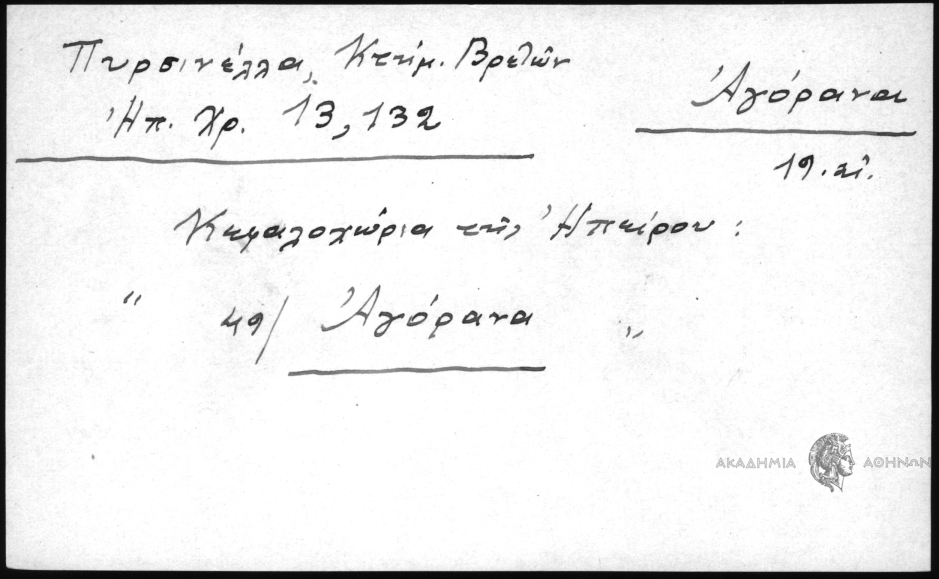 Πυρσινέλλα, Κτημ. Βρετῶν
Ἠπ. Χρ. 13, 132
Ἀγόρανα
19. αἰ.
Κεφαλοχώρια τῆς Ἠπείρου :
" 49/ Ἀγόρανα "
ΑΚΑΔΗΜΙΑ ΑΘΗΝΩΝ